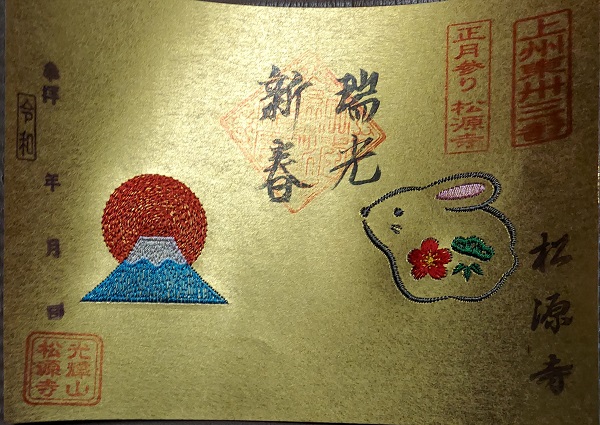 上州東卅三番
正月参り 松源寺
松源寺
瑞光
新春
奉拝
令和
年 月 日
光輝山
松源寺